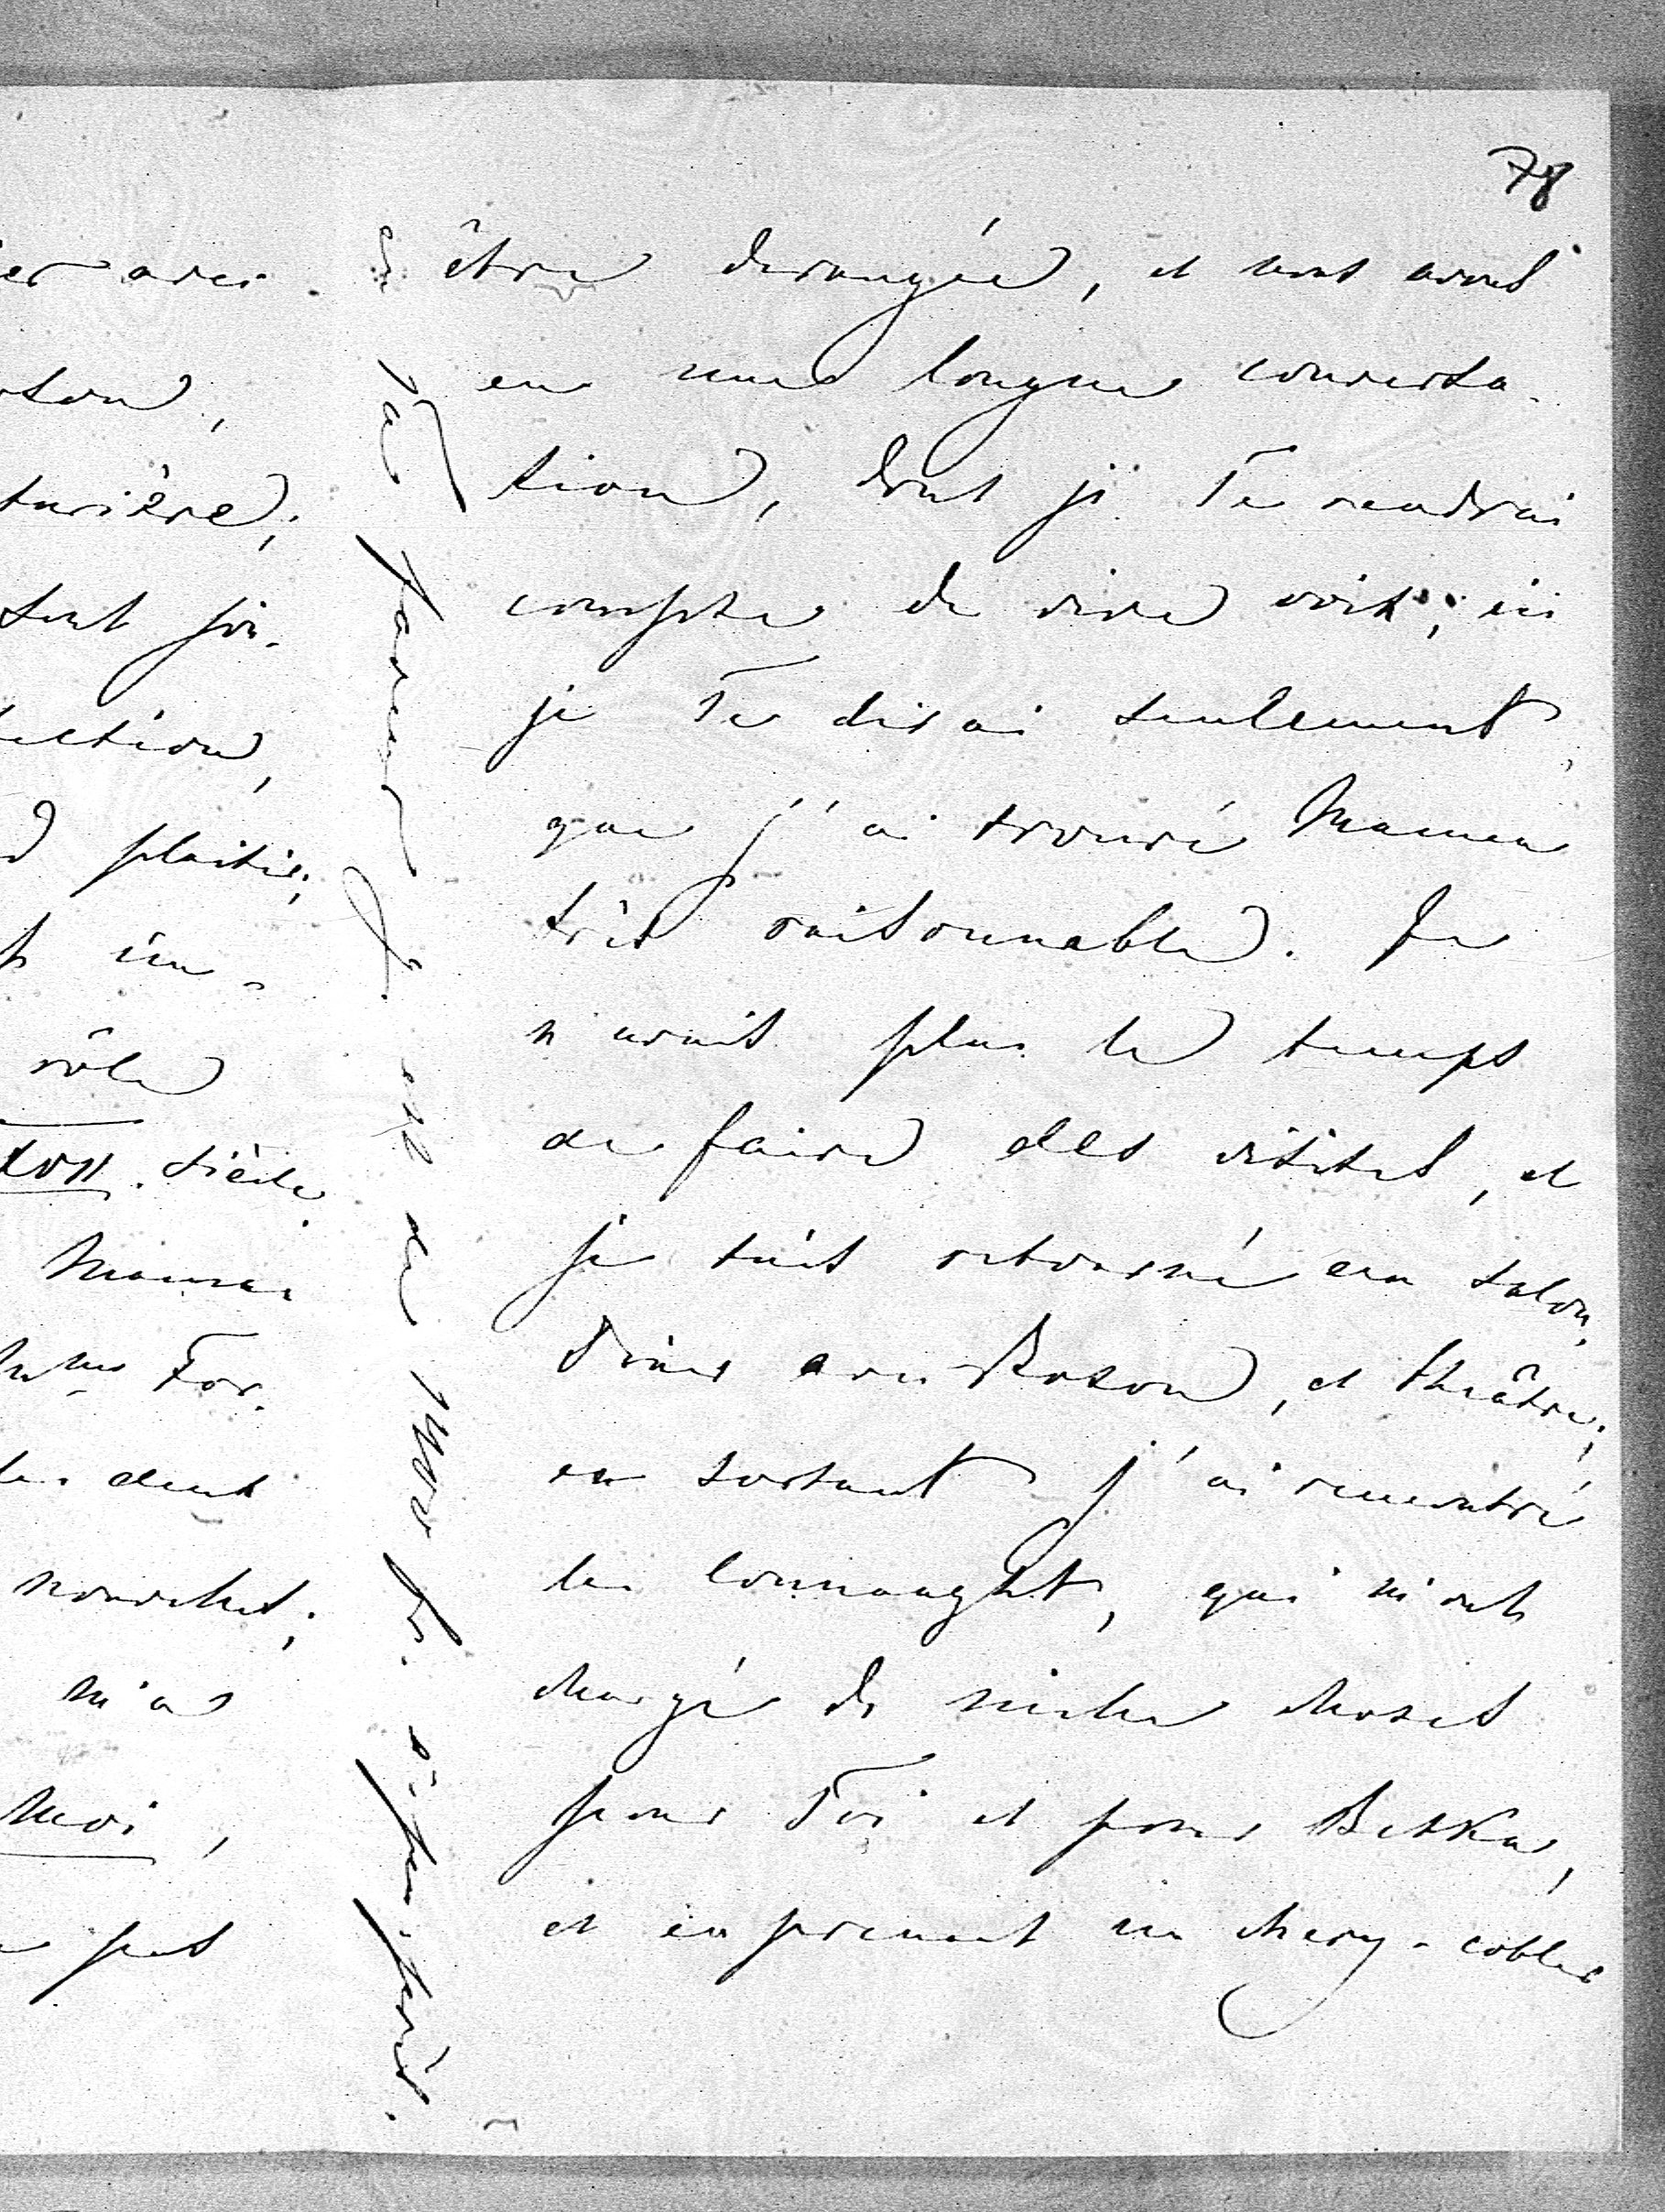 78
être derangée, et nous avons
eu une longue conversa-
tion, dont je Te rendrai
compte de vive voix; ici
je Te dirai seulement,
que j'ai trouvé Maman
très raisonnable. Je
n'avais plus le temps
de faire des visites, et
je suis retourné au salon.
Diner avec Roson, et théâtre;
en sortant j'ai rencontré
les Connaught, qui m'ont
chargé de mille choses
pour Toi et pour Bekka,
et en prenant un chery-cobler
er avec
ston,
turière;
sont join-
ection,
plaisir;
un-
rôle
XVII. siècle.
Maman
Mme For-
les deux
m'a
moi,
pas